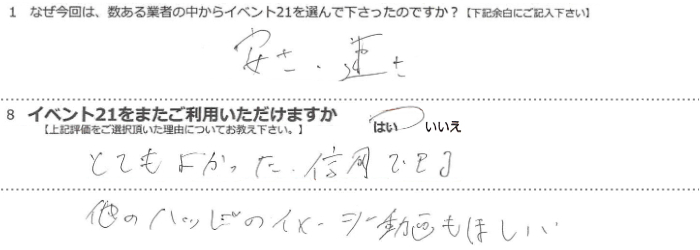 1 なぜ今回は、数ある業者の中からイベント21を選んで下さったのですか？【下記余白にご記入下さい】
安さ・速さ
8 イベント21をまたご利用いただけますか はい いいえ
【上記評価をご選択頂いた理由についてお教え下さい。】
とてもよかった。信用できる
他のハッピのイメージ動画もほしい